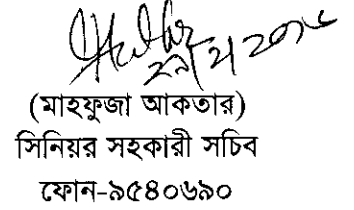 ২৯/২/২০১৬
(মাহফুজা আকতার)
সিনিয়র সহকারী সচিব
ফোন-৯৫৪০৬৯০